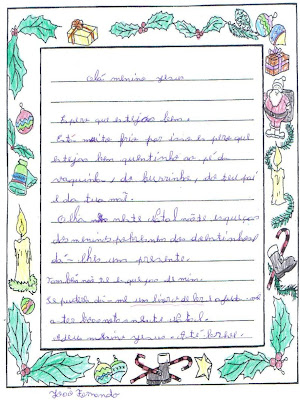 Olá menino jesus
Espero que estejas bem.
Está muito frio por isso espero que
estejas bem quentinho ao pé da
vaquinha, do burrinho, do teu pai
e da tua mã.
Olha neste Natal não te esqueças
dos meninos pobrezinhos dos doentinhos
dá-lhes um presente.
Também não te esqueças de mim.
Se puderes dá-me um livro de
a ter boas notas neste Natal.
Adeus menino jesus. Até breve.
João Fernando